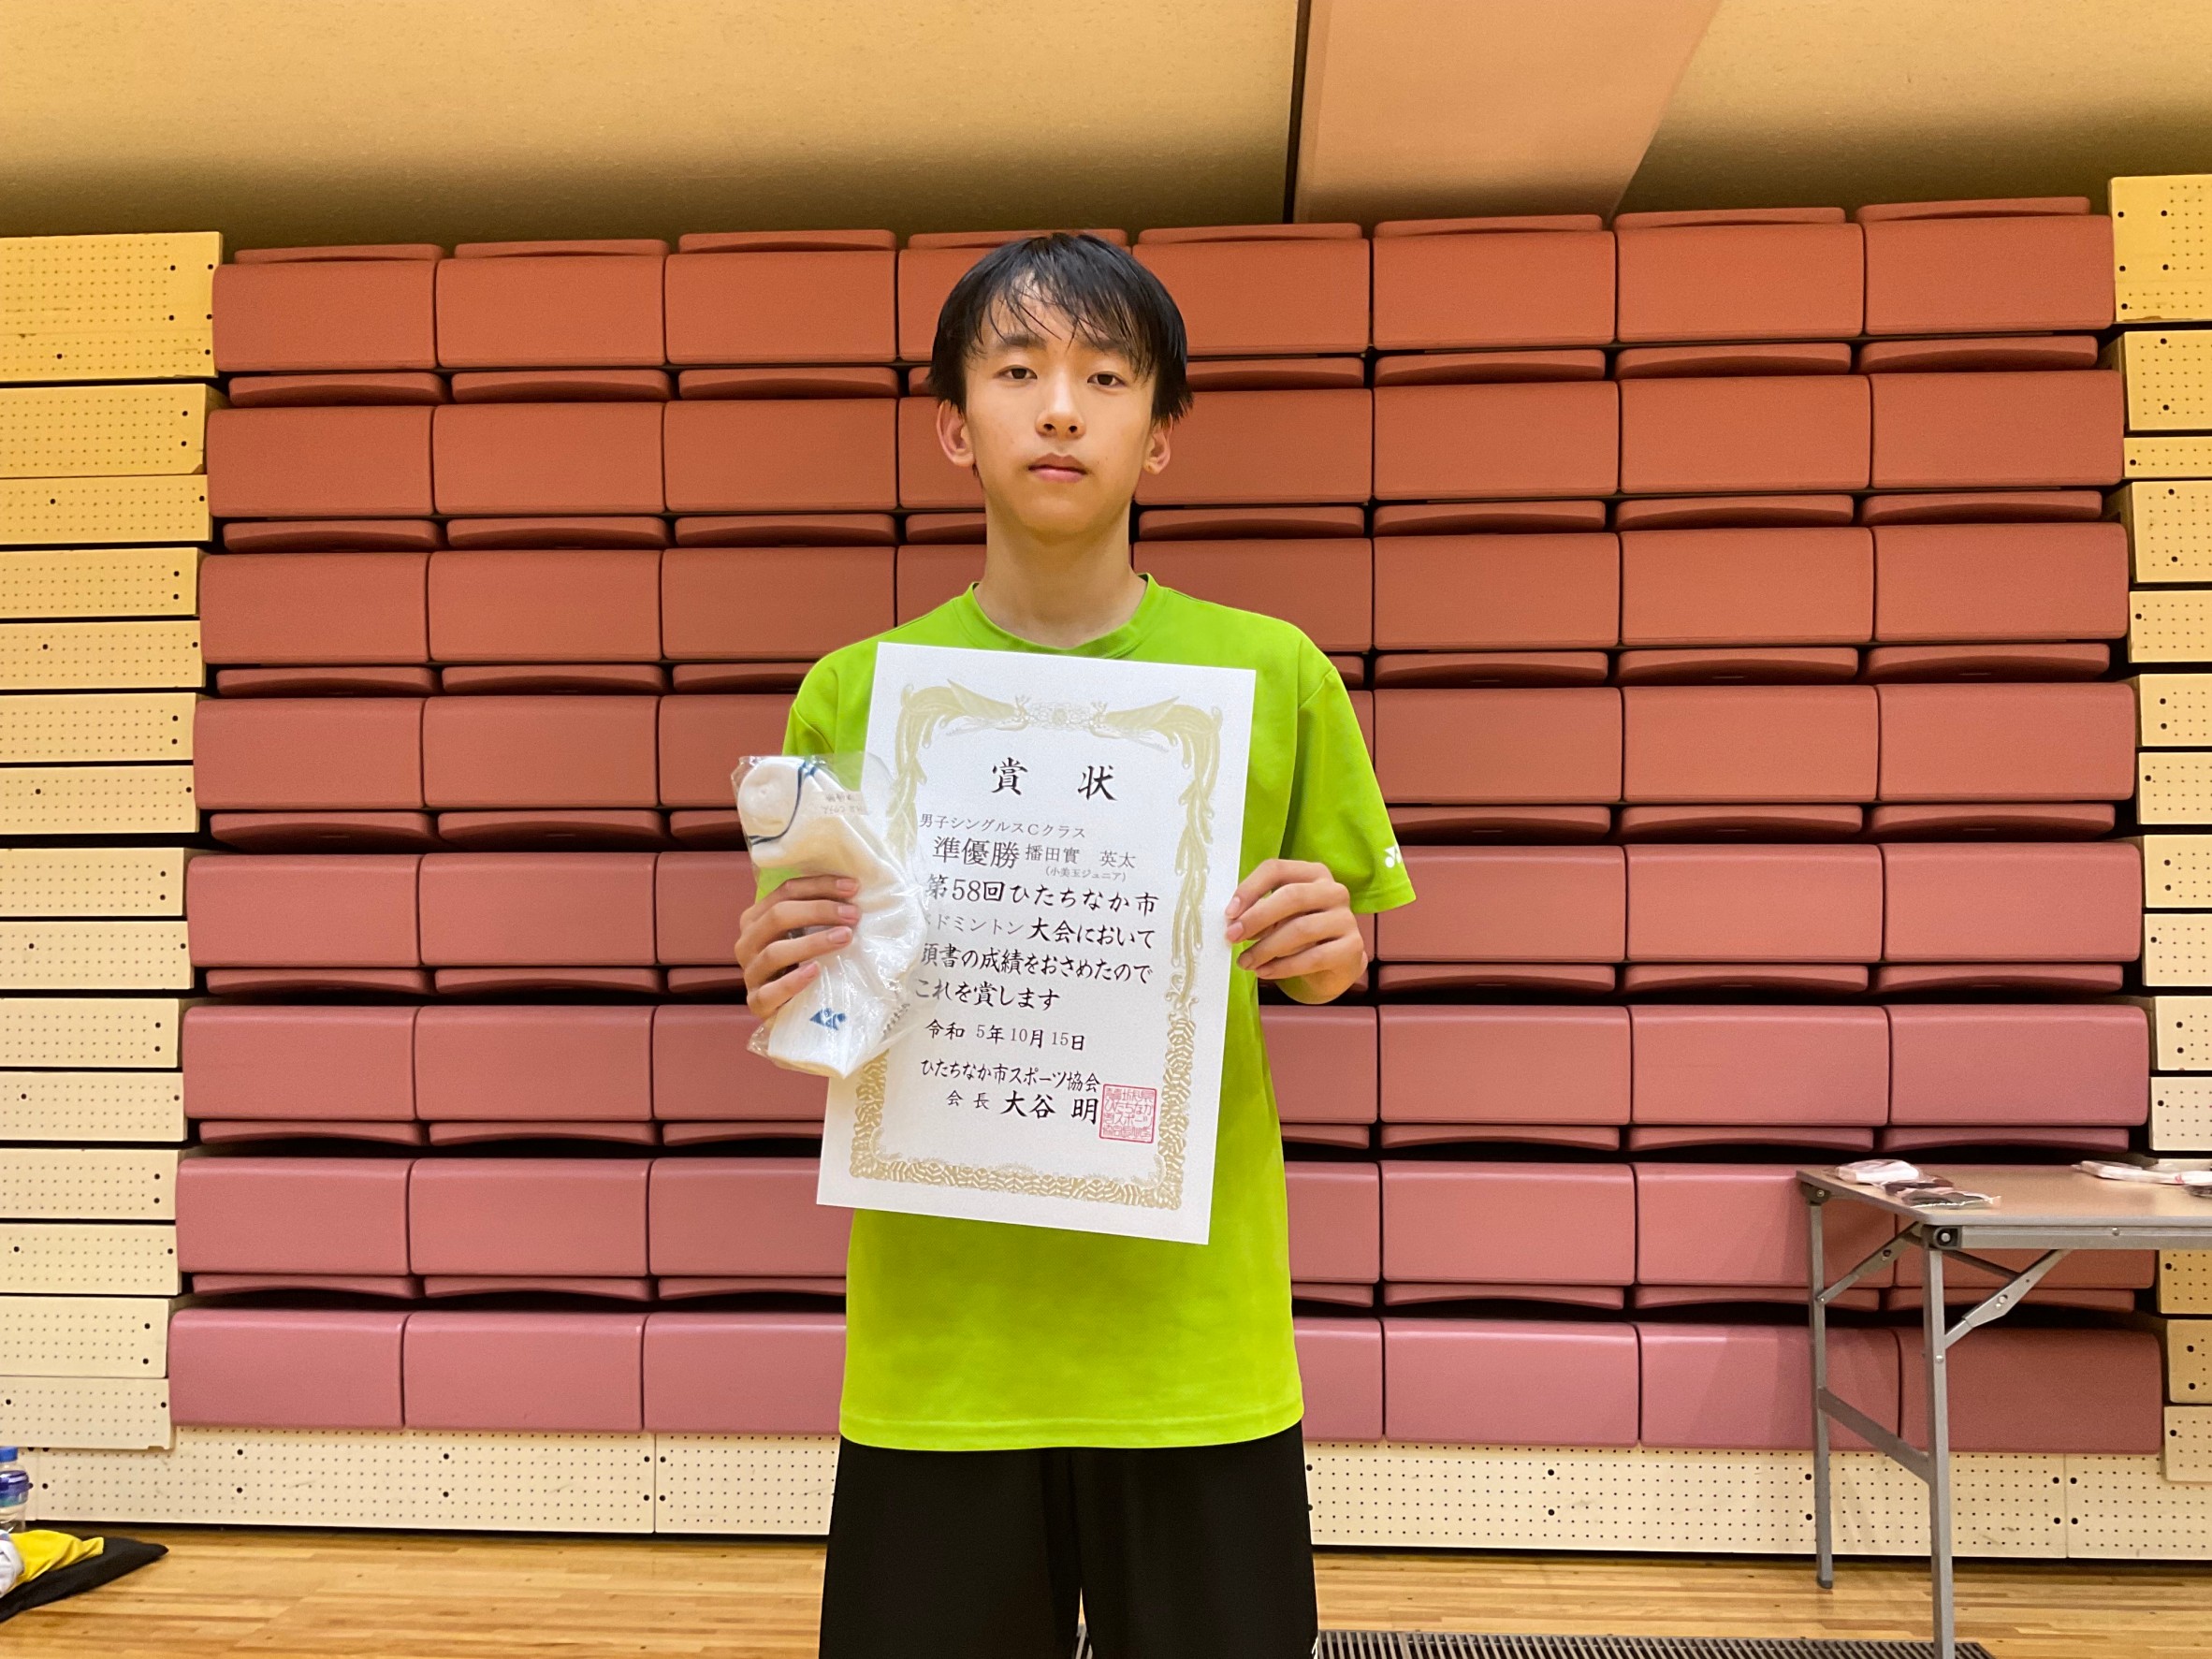 賞 状
男子シングルスCクラス
準優勝 播田實 英太
(小美玉ジュニア)
第58回ひたちなか市
ドミントン大会において
頭書の成績をおさめたので
これを賞します
令和 5年10月15日
ひたちなか市スポーツ協会
会長 大谷 明